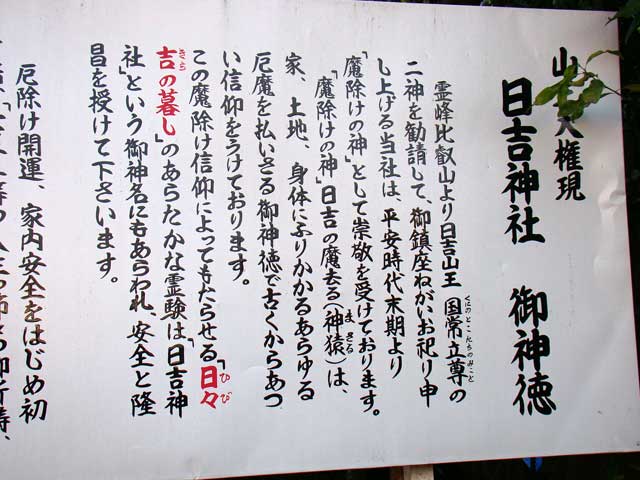 山 大権現
日吉神社 御神徳
霊峰比叡山より日吉山王 国常立尊の
くにのとこたちのみこと
二神を勧請して、御鎮座ねがいお祀り申
し上げる当社は、平安時代末期より
「魔除けの神」として崇敬を受けております。
「魔除けの神」日吉の魔去る(神猿)は、
まさる
家、土地、身体にふりかかるあらゆる
厄魔を払いさる御神徳で古くからあつ
い信仰をうけております。
この魔除け信仰によってもたらせる「日々
ひび
吉の暮し」のあらたかな霊験は「日吉神
きち
社」という御神名にもあらわれ、安全と隆
昌を授けて下さいます。
厄除け開運、家内安全をはじめ初